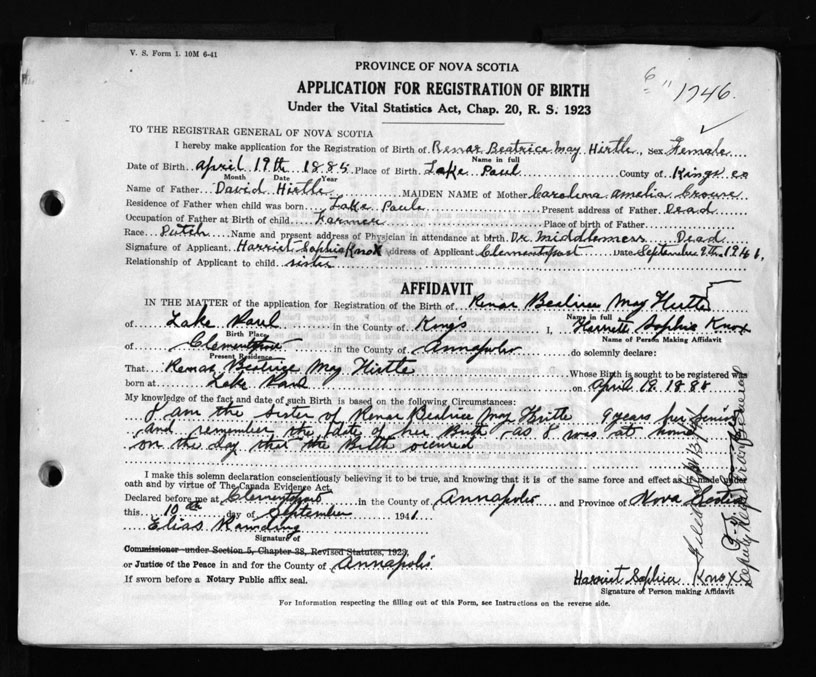 V. S. Form 1. 10M 6-41
PROVINCE OF NOVA SCOTIA
APPLICATION FOR REGISTRATION OF BIRTH
Under the Vital Statistics Act, Chap. 20, R. S. 1923
1746.
TO THE REGISTRAR GENERAL OF NOVA SCOTIA
I hereby make application for the Registration of Birth of Renar Beatrice May Hirtle, Sex Female
Name in full
Date of Birth April 19th 1885 Place of Birth Lake Paul County of Kings co
Month Date Year
Name of Father David Hirtle MAIDEN NAME of Mother Carolina Amelia Crouse
Residence of Father when child was born Lake Paul Present address of Father Dead
Occupation of Father at Birth of child Farmer Place of birth of Father
Race Dutch Name and present address of Physician in attendance at birth Dr. Middlemess Dead
Signature of Applicant Harriet Sophia Knox Address of Applicant Clementsport Date September 9th 1941.
Relationship of Applicant to child sister
AFFIDAVIT
IN THE MATTER of the application for Registration of the Birth of Renar Beatrice May Hirtle
Name in full
of Lake Paul in the County of Kings I, Harriett Sophia Knox
Birth Place Name of Person Making Affidavit
of Clementsport in the County of Annapolis do solemnly declare:
Present Residence
That Renar Beatrice May Hirtle Whose Birth is sought to be registered was
born at Lake Paul on April 19 1885
My knowledge of the fact and date of such Birth is based on the following Circumstances:
I am the sister of Renar Beatrice May Hirtle 9 years her senior
and remember the date of her Birth as I was at home
on the day that the Birth occured
I make this solemn declaration conscientiously believing it to be true, and knowing that it is of the same force and effect as if made under
oath and by virtue of The Canada Evidence Act.
Declared before me at Clementsport in the County of Annapolis and Province of Nova Scotia
this 10th day of September 1941
Elias Ramding
Signature of
Commissioner under Section 5, Chapter 38, Revised Statutes, 1923,
or Justice of the Peace in and for the County of Annapolis
If sworn before a Notary Public affix seal.
Harriet Sophia Knox
Signature of Person making Affidavit
For Information respecting the filling out of this Form, see Instructions on the reverse side.